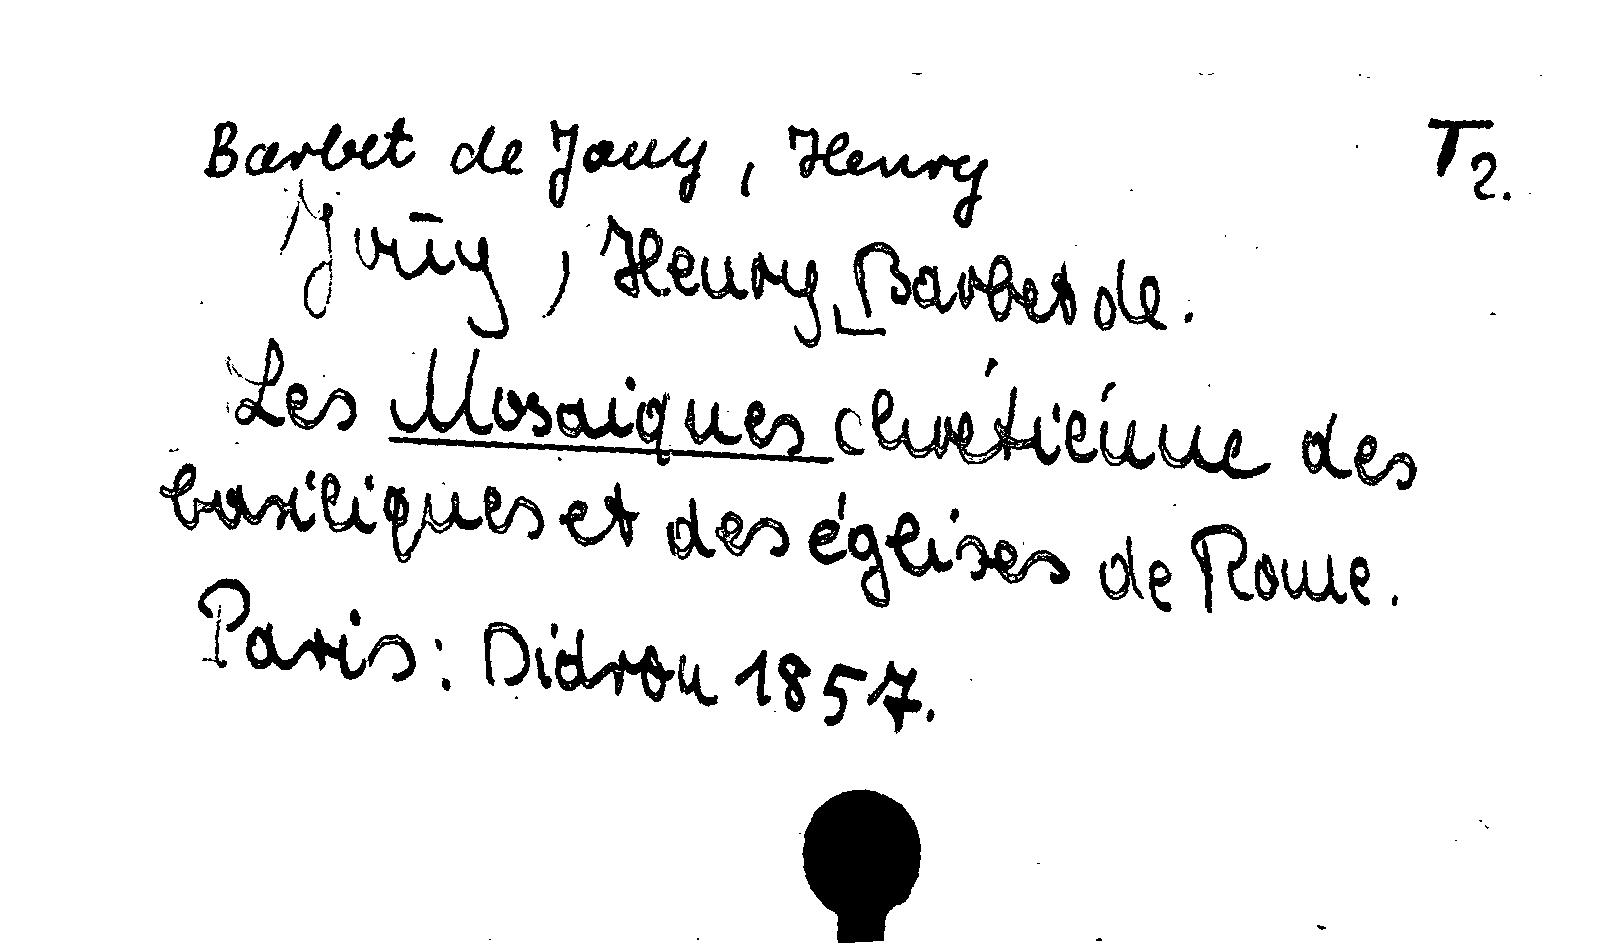 Barbet de Jouy, Henry T2.
Joūy, Henry Barbet de.
Les Mosaiques chrétiénne des
basiliques et des églises de Rome.
Paris: Didron 1857.